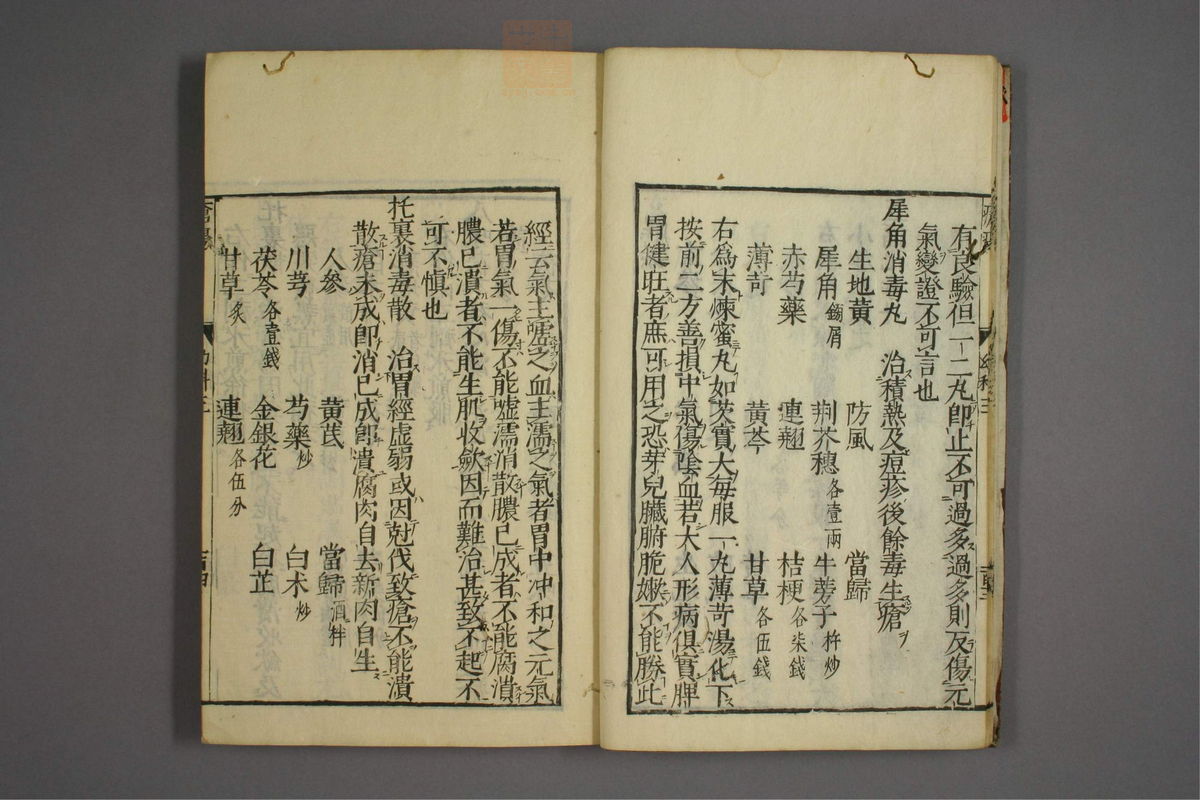 有良驗但一二丸即止不可過多過多則反傷元
氣變證不可言也
犀角消毒丸　治積熱及痘疹後餘毒生瘡
生地黃　防風　當歸
犀角鎊屑　荆芥穗各壹兩　牛蒡子杵炒
赤芍藥　連翹　桔梗各柒錢
薄苛　黃芩　甘草各伍錢
右爲末煉蜜丸如芡實大每服一丸薄苛湯化下
按前二方善損中氣傷陰血若大人形病俱實脾
胃健旺者庶可用之恐芽兒臟腑脆嫩不能勝此
經云氣主噓之血主濡之氣者胃中冲和之元氣
若胃氣一傷不能噓濡消散膿已成者不能腐潰
膿已潰者不能生肌收斂因而難治甚致不起不
可不愼也
托裏消毒散　治胃經虛弱或因尅伐致瘡不能潰
散瘡未成即消已成即潰腐肉自去新肉自生
人參　黃芪　當歸酒拌
川芎　芍藥炒　白朮炒
茯苓各壹錢　金銀花　白芷
甘草炙　連翹各伍分